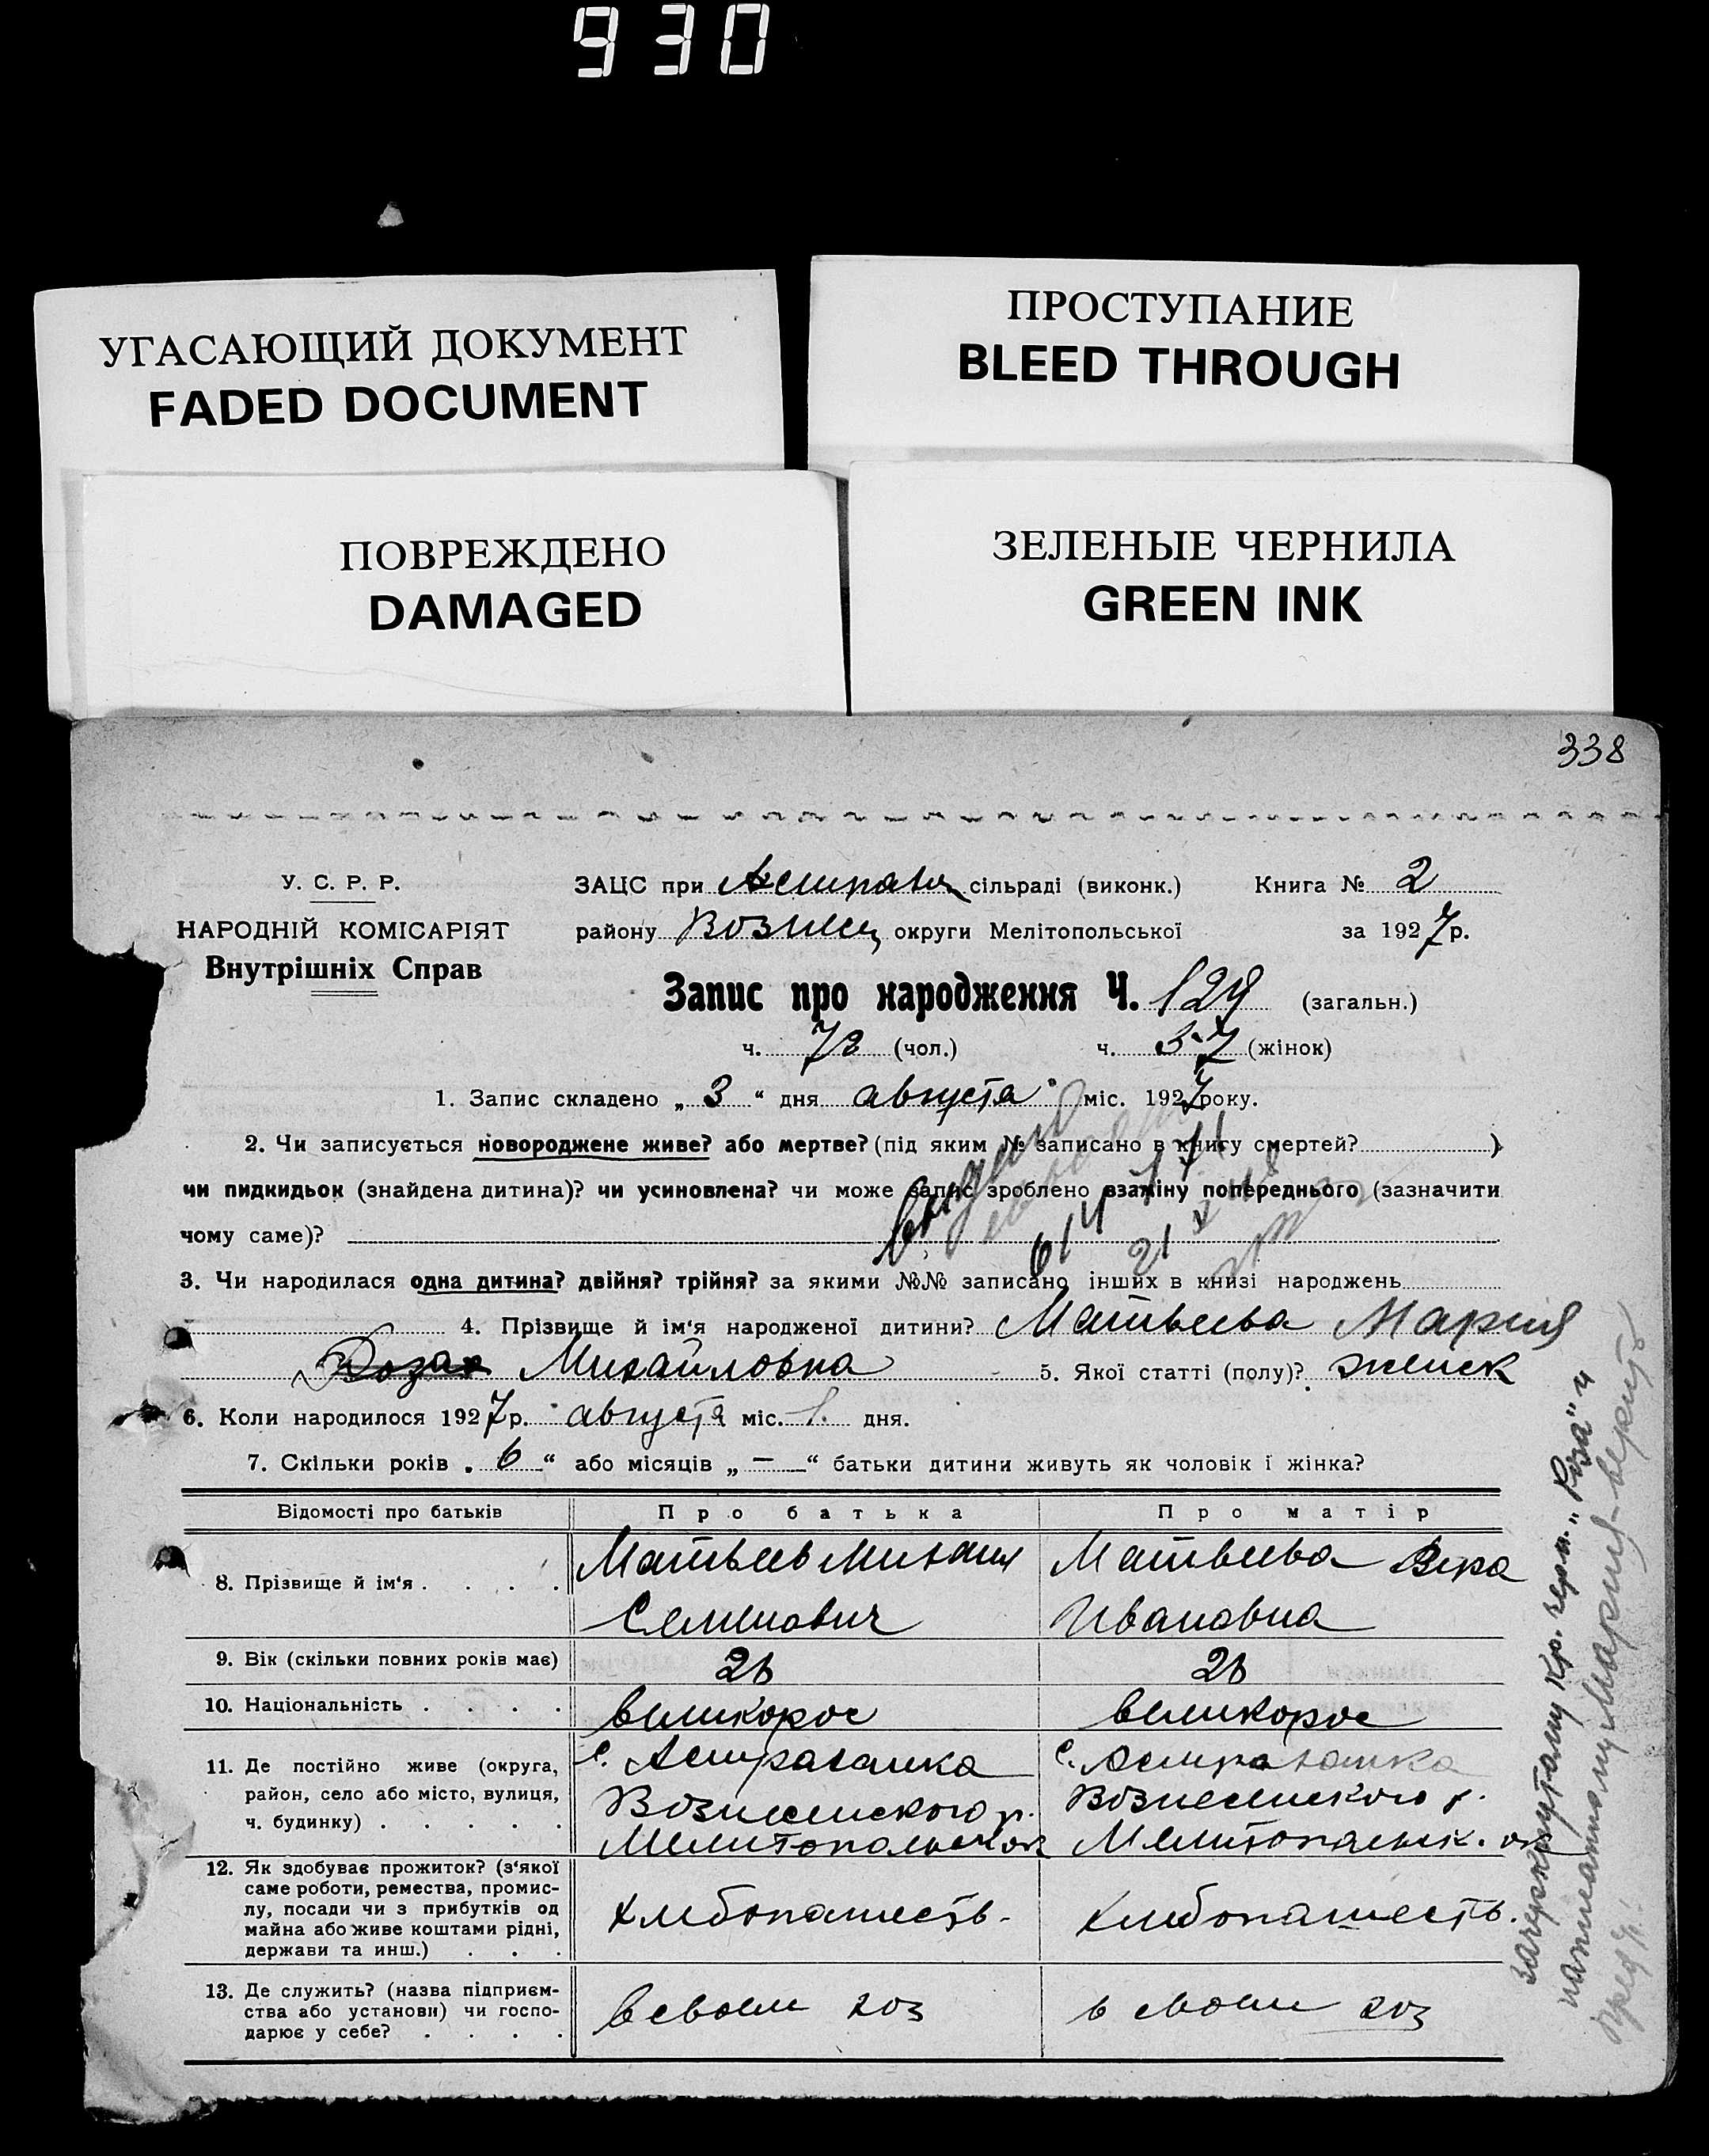 930
УГАСАЮЩИЙ ДОКУМЕНТ
FADED DOCUMENT
ПРОСТУПАНИЕ
BLEED THROUGH
ПОВРЕЖДЕНО
DAMAGED
ЗЕЛЕНЫЕ ЧЕРНИЛА
GREEN INK
338
У. С. Р. Р.
НАРОДНІЙ КОМІСАРІЯТ
Внутрішніх Справ
ЗАЦС при сільраді (виконк.) Книга № 2
району Вознесен округи Мелітопольської за 1927 р.
Запис про народження Ч. 129 (загальн.)
ч. 72 (чол.) ч. 57 (жінок)
1. Запис складено „ 3 “ дня августа міс. 1927 року.
2. Чи записується новороджене живе? або мертве? (під яким № записано в книгу смертей? )
чи пидкидьок (знайдена дитина)? чи усиновлена? чи може запис зроблено взаміну попереднього (зазначити
чому саме)?
3. Чи народилася одна дитина? двійня? трійня? за якими №№ записано інших в книзі народжень
4. Прізвище й ім‘я народженої дитини? Матвеева Мария
Роза Михайловна 5. Якої статті (полу)? женск
6. Коли народилося 1927 р. августа міс. 1. дня.
7. Скільки років „ 6 “ або місяців „ — “ батьки дитини живуть як чоловік і жінка?
Відомості про батьків Про батька Про матір
8. Прізвище й ім‘я . . . . Матвеев Михаил Матвеева Вера
Семенович Ивановна
9. Вік (скільки повних років має) 26 26
10. Національність . . . . великорос великорос
11. Де постійно живе (округа,
район, село або місто, вулиця,
ч. будинку) . . . . .
с. Астраханка
Вознесенского р.
Мелитопольск ок
с. Астраханка
Вознесенского р.
Мелитопольск. ок
12. Як здобуває прожиток? (з‘якої
саме роботи, ремества, промис-
лу, посади чи з прибутків од
майна або живе коштами рідні,
держави та инш.) . . .
хлебопашеств.
хлебопашеств.
13. Де служить? (назва підприєм-
ства або установи) чи госпо-
дарює у себе? . . . .
в своем хоз
в своем хоз
выдано
зачеркнутому кр. черн. „Роза“ и
написанному Мария - верить